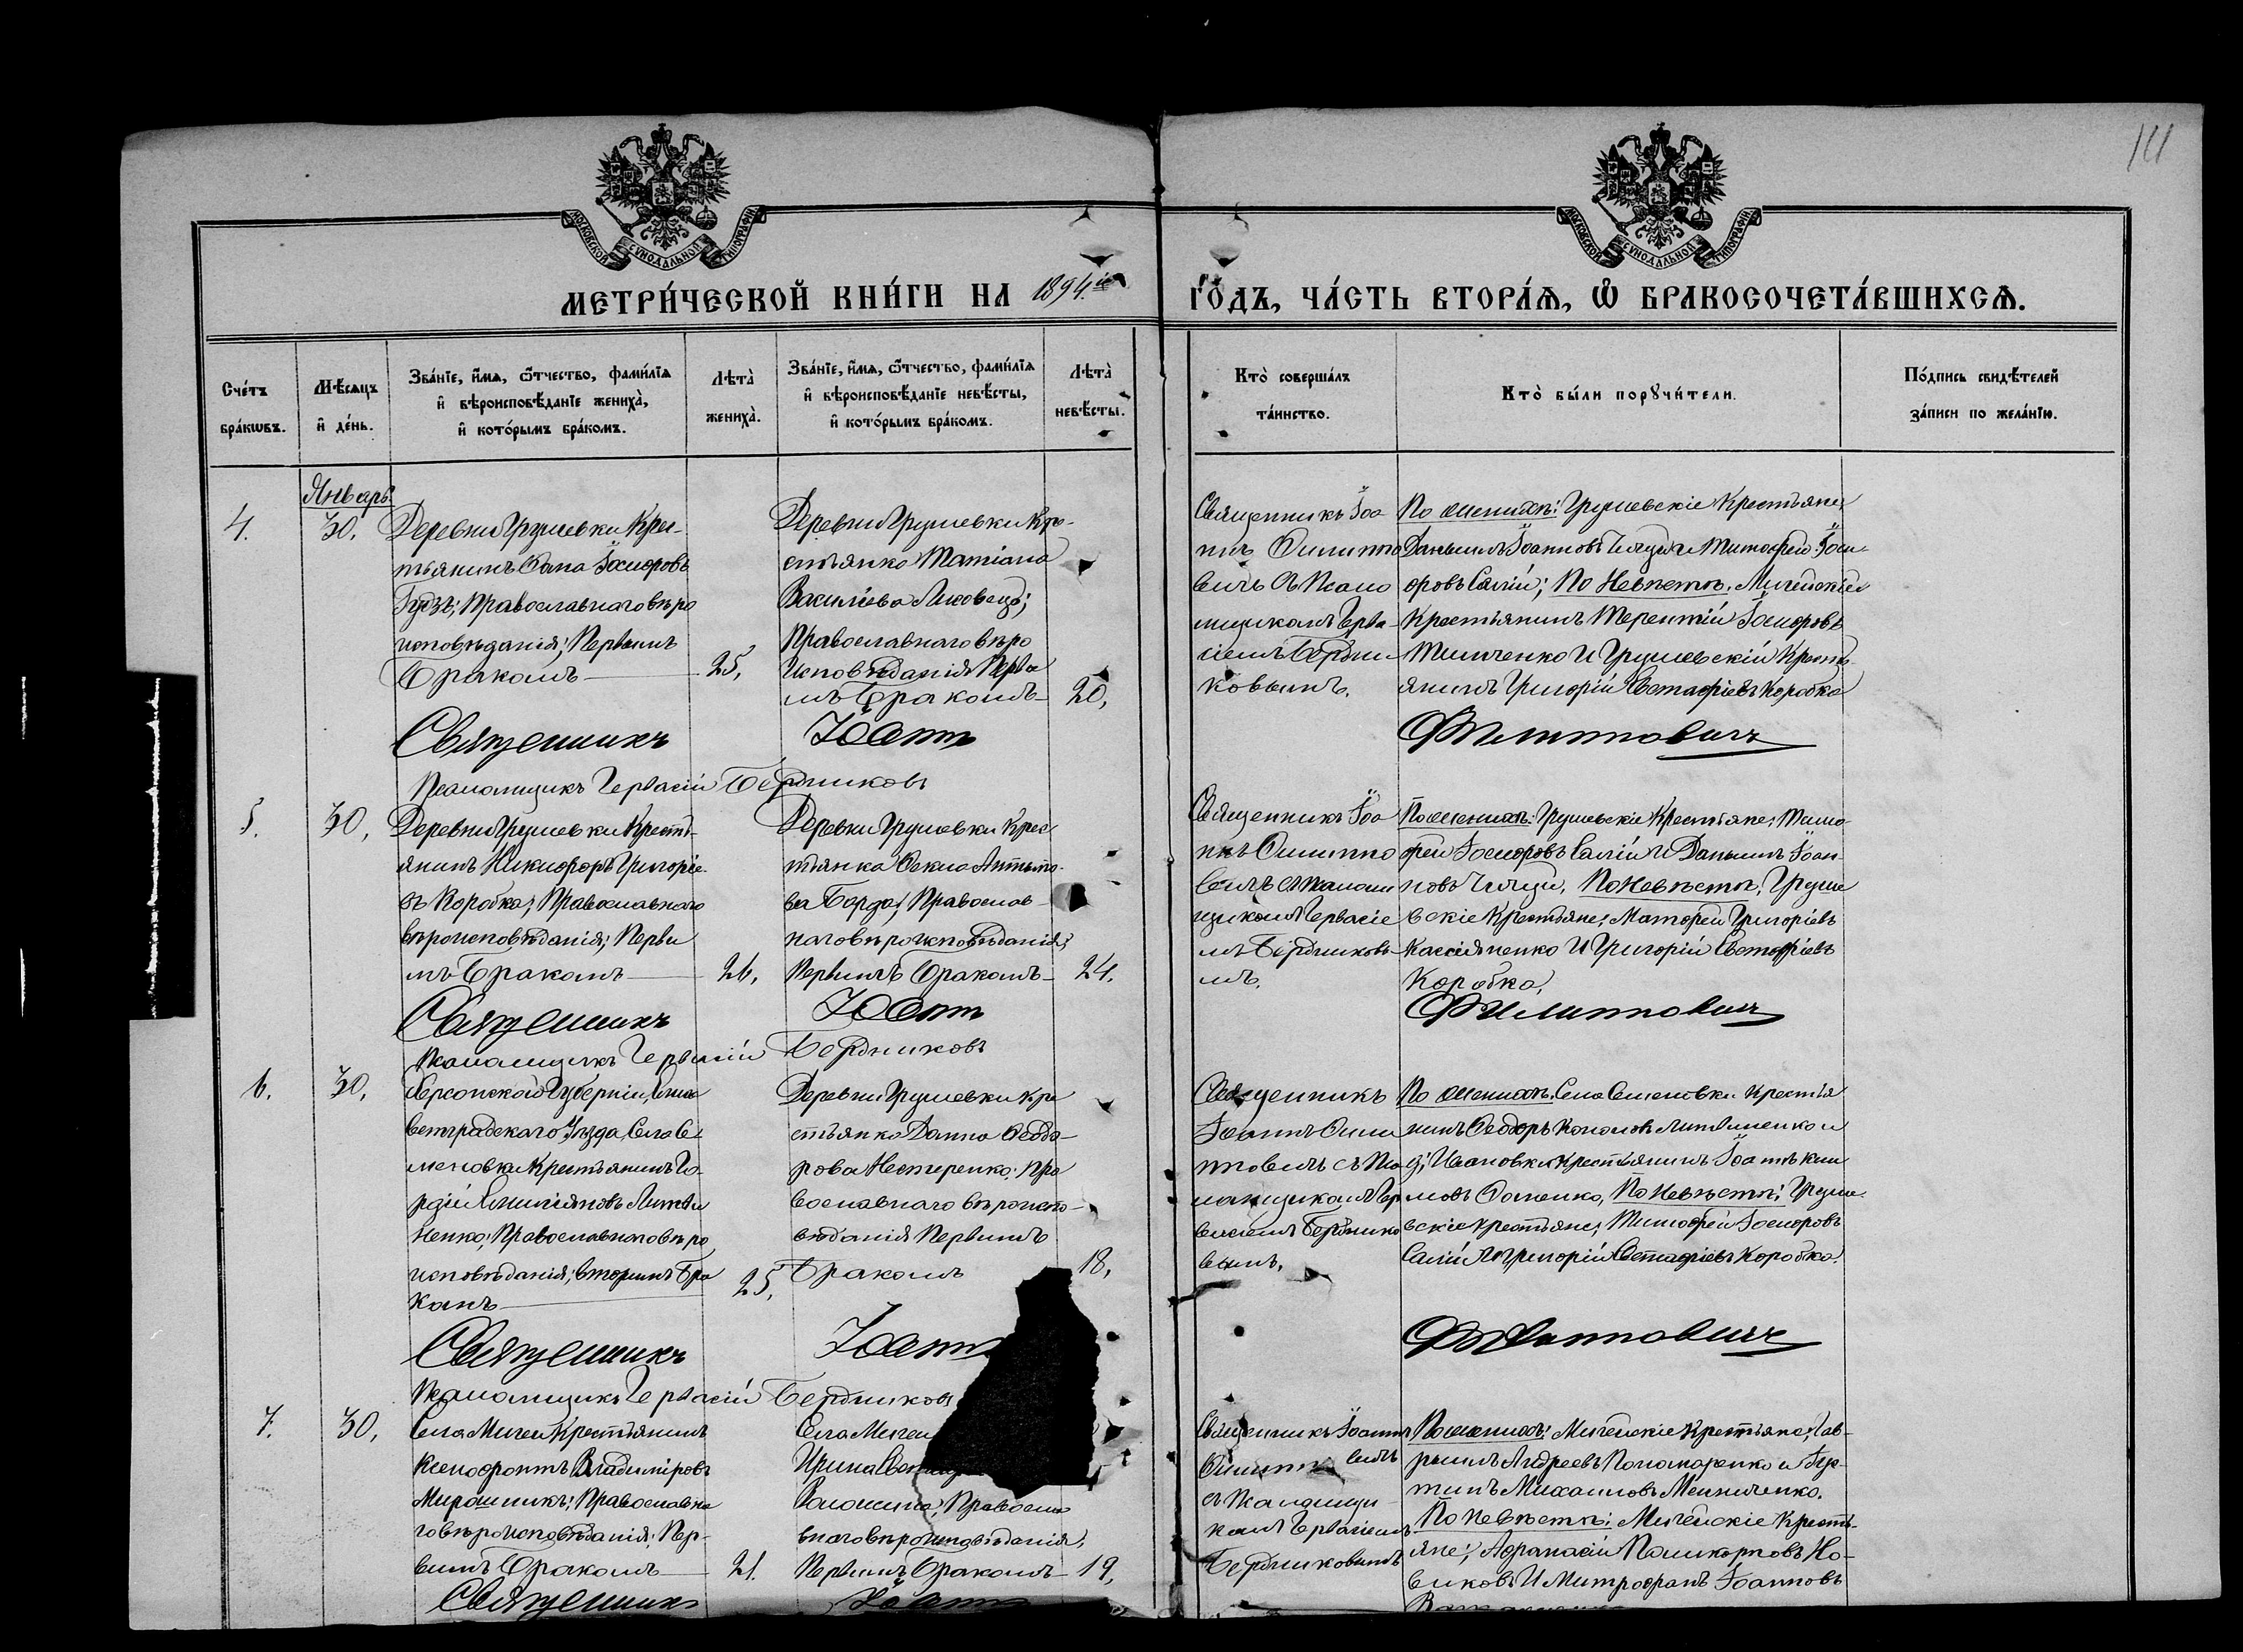 111
МОСКОВСКОЙ СѴНОДАЛЬНОЙ ТИПОГРАФІИ
МОСКОВСКОЙ СѴНОДАЛЬНОЙ ТИПОГРАФІИ
МЕТРИ́ЧЕСКОЙ КНИ́ГИ НА 1894й
ГО́ДЪ, ЧА́СТЬ ВТОРА́Ѧ, Ѽ БРАКОСОЧЕТА́ВШИХСѦ.
Сче́тъ бра́кѡвъ.
Мѣ́сяцъ и҆ де́нь.
Зва́нїе, и҆́мѧ, ѻ҆́тчество, фами́лїѧ
и҆ вѣроисповѣ́данїе жениха̀,
и҆ кото́рымъ бра́комъ.
Лѣта̀ жениха̀.
Зва́нїе, и҆́мѧ, ѻ҆́тчество, фами́лїѧ
и҆ вѣроисповѣ́данїе невѣ́сты,
и҆ кото́рымъ бра́комъ.
Лѣта̀ невѣ́сты.
Кто̀ соверша́лъ та́инство.
Кто̀ бы́ли порꙋчи́тели.
По́дпись свидѣ́телей за́писи по жела́нїю.
Январь
4.
30.
Деревни Грушевки Кре-
стьянинъ Ѳома Іосифовъ
Гудзъ; Православнаго вѣро
исповѣданія; Первымъ
бракомъ
25,
Деревни Грушевки Кре-
стьянка Татіана
Василіева Ликовецъ;
Православнаго вѣро
исповѣданія Первы
мъ бракомъ
20,
Священникъ Іоа
ннъ Филиппо
вичъ съ Псало
мщикомъ Герва-
сіемъ Бердни-
ковымъ.
По женихѣ: Грушевскіе Крестьяне;
Даніилъ Іоанновъ и Тимофей Іоси-
форовъ Салій; По Невѣстѣ: Мигейскій
Крестьянинъ Терентій Іосифовъ
Тимченко и Грушевскій Кресть-
янинъ Григорій Евстафіевъ Коробка
Священникъ Іоаннъ Филипповичъ
Псаломщикъ Гервасій Бердниковъ
5.
30,
Деревни Грушевки Кресть-
янинъ Никифоръ Григоріе-
въ Коробка; Православнаго
вѣроисповѣданія; Первы
мъ бракомъ
26,
Деревни Грушевки Крес
тьянка Ѳекла
Борда; Православ-
наго вѣроисповѣданія;
Первымъ бракомъ
24.
Священникъ Іоа
ннъ Филиппо
вичъ съ Псалом
щикомъ Гервасіе
мъ Бердниковы-
мъ.
По женихѣ: Грушевскіе Крестьяне; Тимо-
фей Іосифовъ Салій и Даніилъ Іоан-
новъ По Невѣстѣ; Груше
вскіе Крестьяне; Матфей Григоріевъ
Кассіяненко и Григорій Евстафіевъ
Коробка,
Священникъ Іоаннъ Филипповичъ
Псаломщикъ Гервасій Бердниковъ
6.
30,
Херсонской Губерніи, Елиса
ветградскаго Уѣзда, Села Се
меновки Крестьянинъ Го-
рдій Литви
ненко; Православнаго вѣро
исповѣданія; вторымъ бра
комъ
25,
Деревни Грушевки Кре
стьянка Домна Ѳеодо-
рова Нестеренко; Пра
вославнаго вѣроиспо-
вѣданія Первымъ
бракомъ
18,
Священникъ
Іоаннъ Фили
пповичъ съ Пса
ломщикомъ Гер
васіемъ Берднико
вымъ.
По женихѣ: Села Семеновки Крестья
нинъ Ѳеодоръ Кононовъ Литвиненко и
д. Ивановки Крестьянинъ Іоаннъ
Ѳоменко, По Невѣстѣ; Груше-
вскіе Крестьяне; Тимофей Іосифовъ
Салій и Григорій Евстафіевъ Коробка.
Священникъ Іоаннъ Филипповичъ
Псаломщикъ Гервасій Бердниковъ
7.
30,
Села Мигеи Крестьянинъ
Ксенофонтъ Владиміровъ
Мирошникъ; Православна
го вѣроисповѣданія; Пер-
вымъ бракомъ
21.
Села Мигеи
Ирина
Волошина; Правосла
внаго вѣроисповѣданія,
Первымъ бракомъ
19,
Священникъ Іоаннъ
Филипповичъ
съ Псаломщи
комъ Гервасіемъ
Бердниковымъ
По женихѣ: Мигейскіе Крестьяне; Гав-
ріилъ Андреевъ Пономаренко и
Михаиловъ
По Невѣстѣ: Мигейскіе Кресть-
яне; Афанасій Поликарповъ Но-
виковъ и Митрофанъ Іоанновъ
Священникъ Іоаннъ